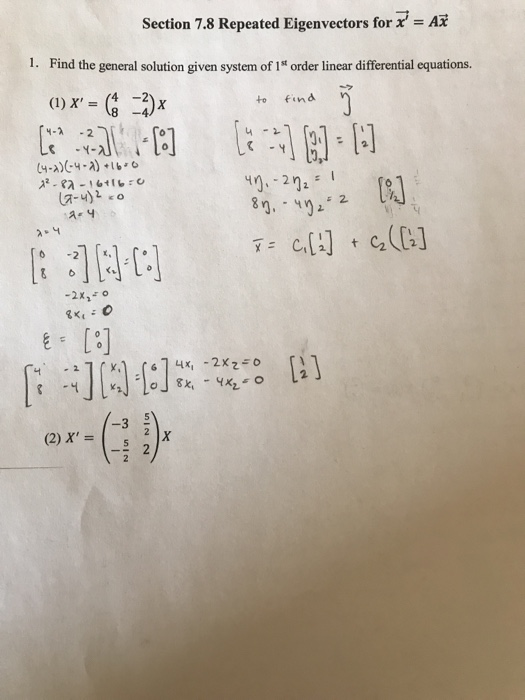 Section 7.8 Repeated Eigenvectors for x⃗' = Ax⃗
1. Find the general solution given system of 1st order linear differential equations.
(1) X' = (4 -2; 8 -4) X
to find η⃗
[4-λ -2; 8 -4-λ][ ] = [0; 0]
[4 -2; 8 -4][η₁; η₂] = [1; 2]
(4-λ)(-4-λ)+16=0
λ² - 8λ - 16+16=0
4η₁ - 2η₂ = 1
(λ-4)² = 0
8η₁ - 4η₂ = 2 [0; 1/2]
λ=4
λ=4
[0 -2; 8 0][x₁; x₂] = [0; 0]
x̄ = C₁[1; 2] + C₂([1; 2]
-2x₂ = 0
8x₁ = 0
ξ = [0; 0]
[4 -2; 8 -4][x₁; x₂] = [0; 0] 4x₁ - 2x₂ = 0 [1; 2]
8x₁ - 4x₂ = 0
(2) X' = (-3 5/2; -5/2 2) X